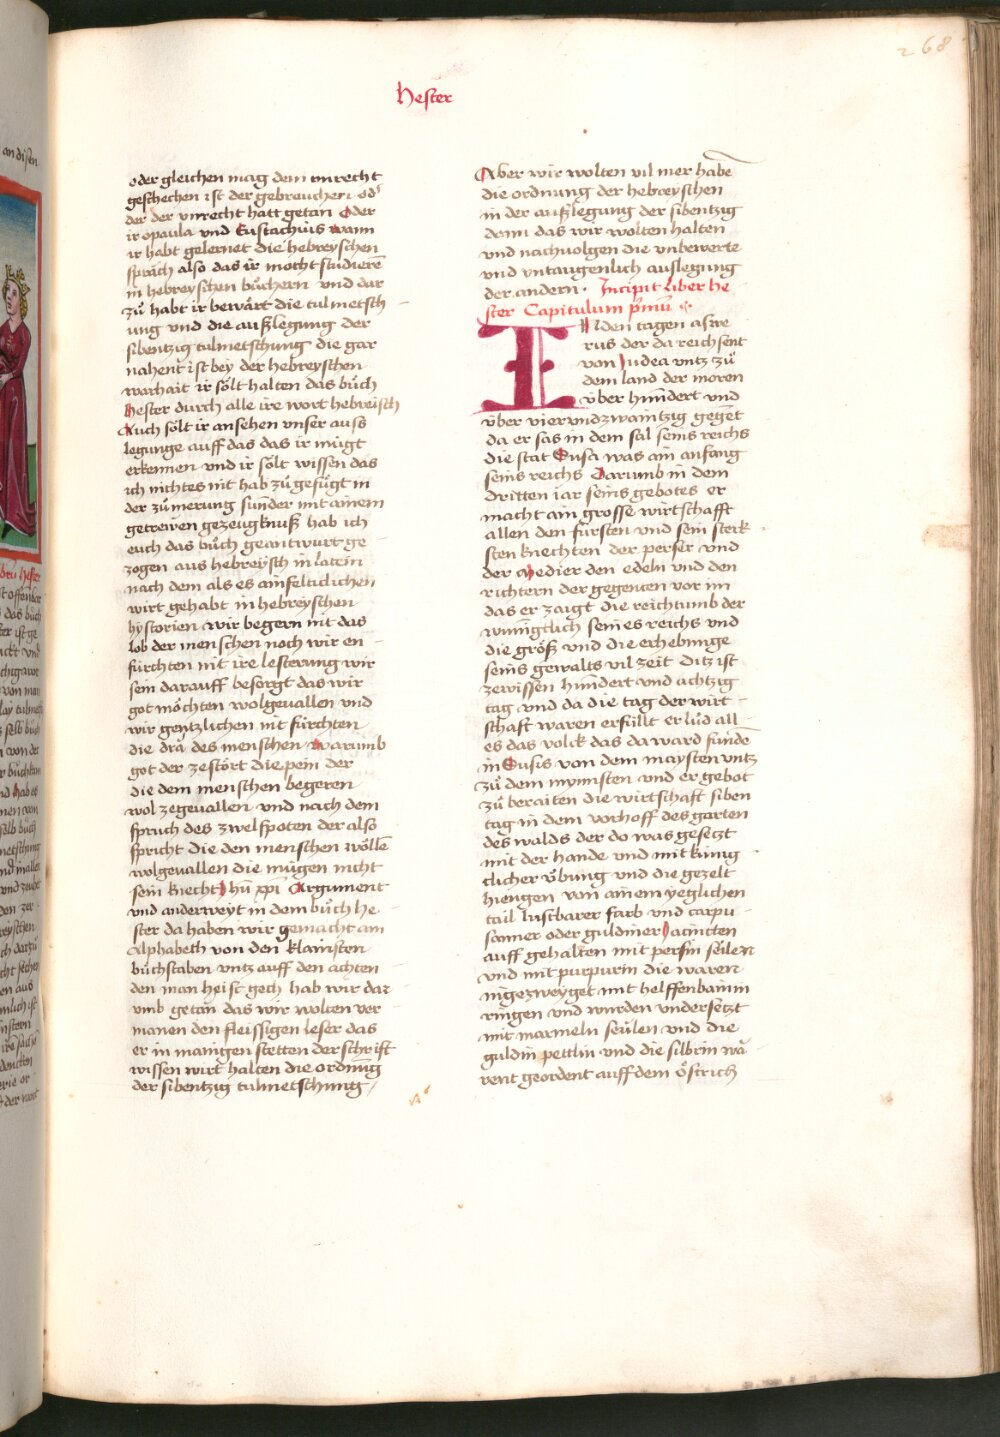 268
Hester
oder gleichen mag dem vnrecht
geschechen ist der gebrauchen od'
der der vnrecht hatt getan Oder
ir o paula vnd Eustachius wann
ir habt gelernet die hebreyschen
sprach also das ir mocht studieren
in hebreyschen büchern vnd dar
zů habt ir bewärt die tulmetsch
ung vnd die außlegung der
sibentzig tulmetschung die gar
nahent ist bey der hebreyschen
warhait ir sölt halten das bůch
hester durch alle ire wort hebreisch
Auch sölt ir ansehen vnser auss
legunge auff das das ir mügt
erkennen vnd ir sölt wissen das
ich nichtes nit hab zů gefügt in
der zůmerung sunder mit ainem
getrewen gezeugknuß hab ich
euch das bůch geantwurt ge
zogen aus hebreysch in latein
nach dem als es ainfalticlichen
wirt gehabt in hebreyschen
hystorien wir begern nit das
lob der menschen noch wir en
fürchten nit ire lesterung wir
sein darauff besorgt das wir
got möchten wolgeuallen vnd
wir gentzlichen nit fürchten
die drä des menschen warumb
got der zestört die pein der
die dem menschen begeren
wol zegeuallen vnd nach dem
spruch des zwelfpoten der also
spricht die den menschen wölle
wolgeuallen die mügen nicht
sein knecht Jhu xpi Argument
vnd anderweyt in dem bůch he
ster da haben wir gemacht ain
Alphabeth von den klainsten
bůchstaben vntz auff den achten
den man heist gech hab wir dar
vmb getan das wir wolten ver
manen den fleissigen leser das
er in manigen stetten der schrift
wissen wirt halten die ordnung
der sibentzig tulmetschung
Aber wir wolten vil mer habe
die ordnung der hebreyschen
in der außlegung der sibentzig
denn das wir wolten halten
vnd nachuolgen die vnbewerte
vnd vntaugenlich auslegung
der andern · Incipit liber he
ster Capitulum pmu
IN den tagen aswe
rus der da reichsent
von Judea vntz zů
dem land der moren
über hundert vnd
über vierundzwaintzig gegēt
da er sas in dem sal seins reichs
die stat Susa was ain anfang
seins reichs Darumb in dem
dritten iar seins gebotes er
macht ain grosse wirtschafft
allen den fürsten vnd sein sterk
sten knechten der perser vnd
der Medier den edeln vnd den
richtern der gegenten vor im
das er zaigt die reichtumb der
wunigtlich seines reichs vnd
die größ vnd die erhebunge
seins gewalts vil zeit ditz ist
zewissen hundert vnd achtzig
tag vnd da die tag der wirt
schaft waren erfüllt er lůd all
es das volck das da ward funde
in Susis von dem maysten vntz
zů dem mynnsten vnd er gebot
zů beraiten die wirtschaft siben
tag in dem vorhoff des garten
des walds der do was gesetzt
mit der hande vnd mit künig
clicher übung vnd die gezelt
hiengen von ainem yeglichen
tail lustbarer farb vnd carpu
sanner oder guldiner Jacincten
auff gehalten mit persin seülen
vnd mit purpurin die waren
ingezweyget mit helffenbainin
ringen vnd wurden vndersetzt
mit marmeln seülen vnd die
guldin pettlin vnd die silbrin wa
rent geordent auff dem östrich